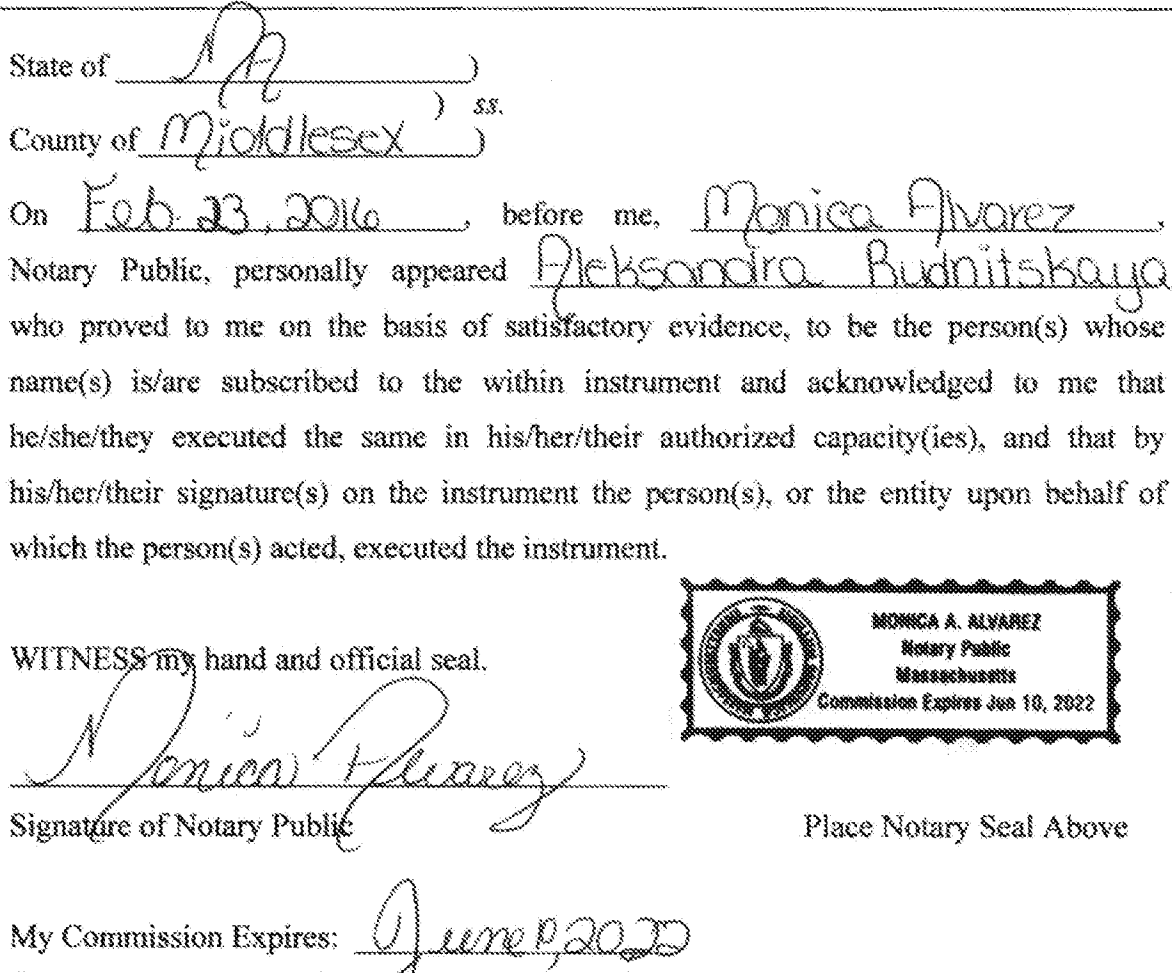 State of MA )
) ss.
County of Middlesex )
On Feb. 23, 2016, before me, Monica Alvarez,
Notary Public, personally appeared Aleksandra Budnitskaya
who proved to me on the basis of satisfactory evidence, to be the person(s) whose
name(s) is/are subscribed to the within instrument and acknowledged to me that
he/she/they executed the same in his/her/their authorized capacity(ies), and that by
his/her/their signature(s) on the instrument the person(s), or the entity upon behalf of
which the person(s) acted, executed the instrument.
MONICA A. ALVAREZ
Notary Public
Massachusetts
Commission Expires Jun 10, 2022
WITNESS my hand and official seal.
Monica Alvarez
Signature of Notary Public
Place Notary Seal Above
My Commission Expires: June 10, 2022